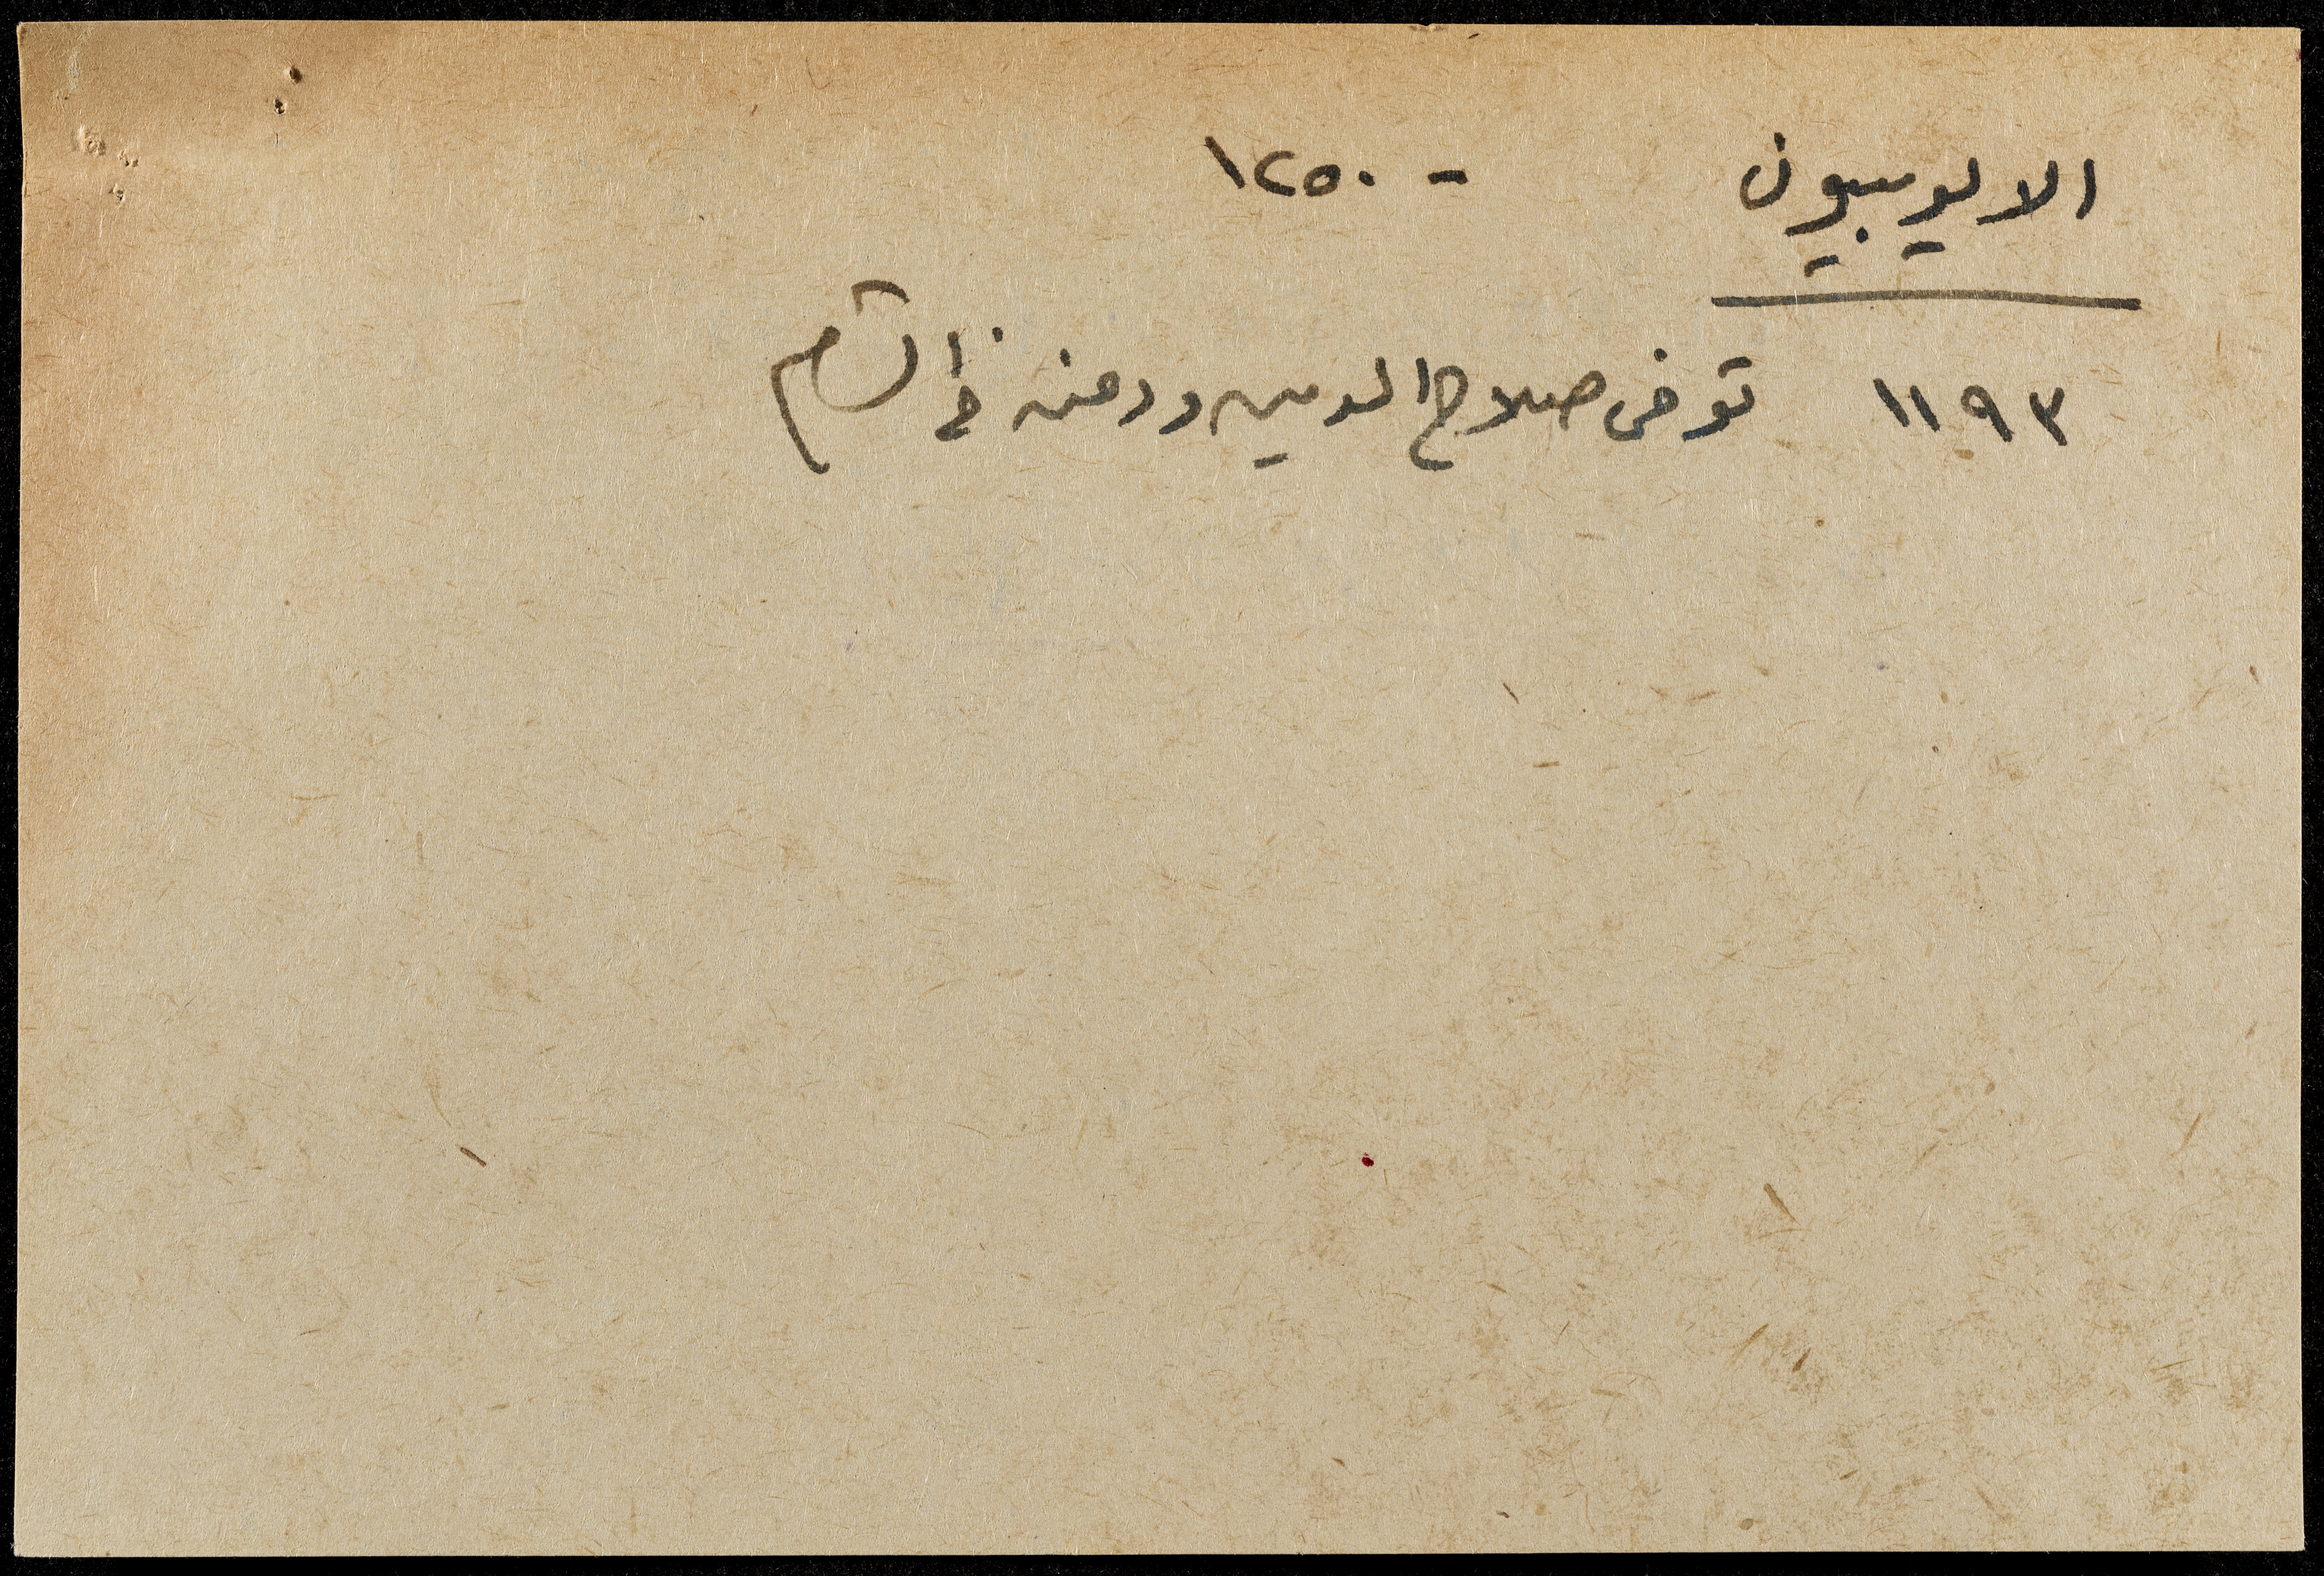 الايوبيون - ١٢٥٠
١١٩٣ توفى صلاح الدين ودفن فى الشام